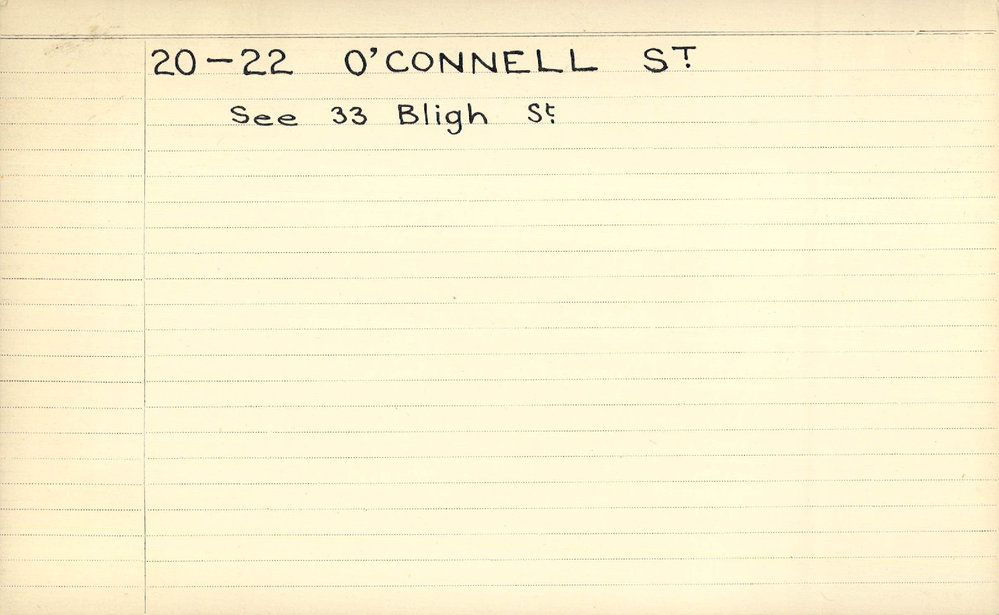 20-22 O'CONNELL ST.
See 33 Bligh St.